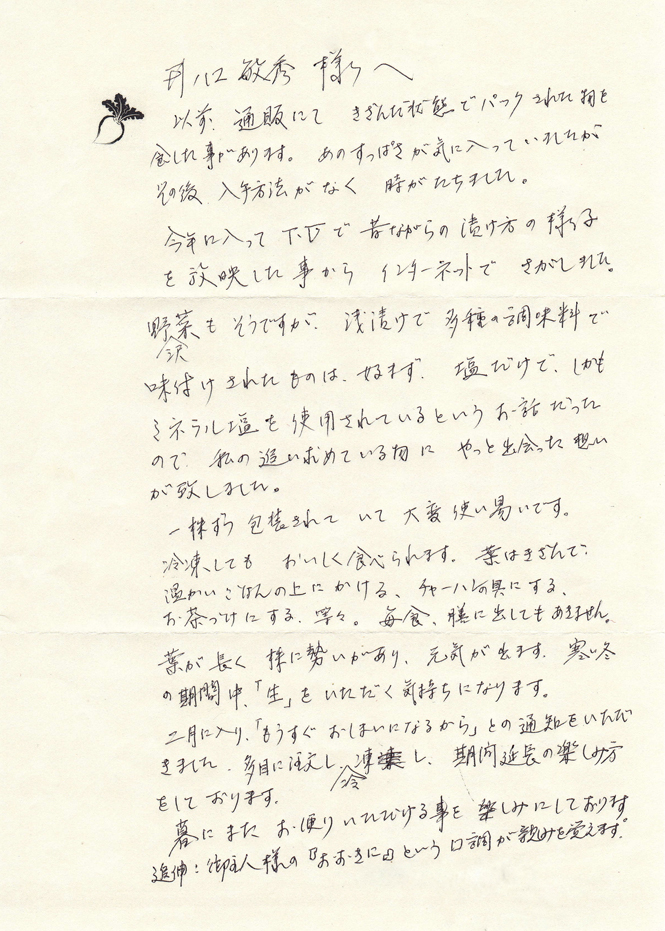 敏秀 様へ
以前 通販にて きざんだ状態でパックされた物を
食した事があります。 あのすっぱさが気に入っていましたが
その後、入手方法がなく 時がたちました。
今年に入って T.Vで 昔ながらの漬け方の様子
を放映した事から インターネットで さがしました。
野菜も そうですが、浅漬けで 多種の調味料で
沢
味付けされたものは、好まず、 塩だけで、しかも
ミネラル塩を使用されているという お話だった
ので、私の追い求めている物に やっと出会った想い
が致しました。
一株ずつ 包装されて いて 大変使い易いです。
冷凍しても おいしく食べられます。 葉はきざんで
温かいごはんの上にかける、チャーハンの具にする、
お茶づけにする、等々。 毎食、膳に出してもあきません。
葉が長く 株に勢いがあり、元気が出ます。寒い冬
の期間中、「生」をいただく気持ちになります。
二月に入り、「もうすぐ おしまいになるから」との通知をいただ
きました。多目に注文し、凍し、期間延長の楽しみ方
冷
をしております。
暮にまた お便りいただける事を 楽しみにしております
追伸:御主人様の『おおきに』という口調が親みを覚えます。